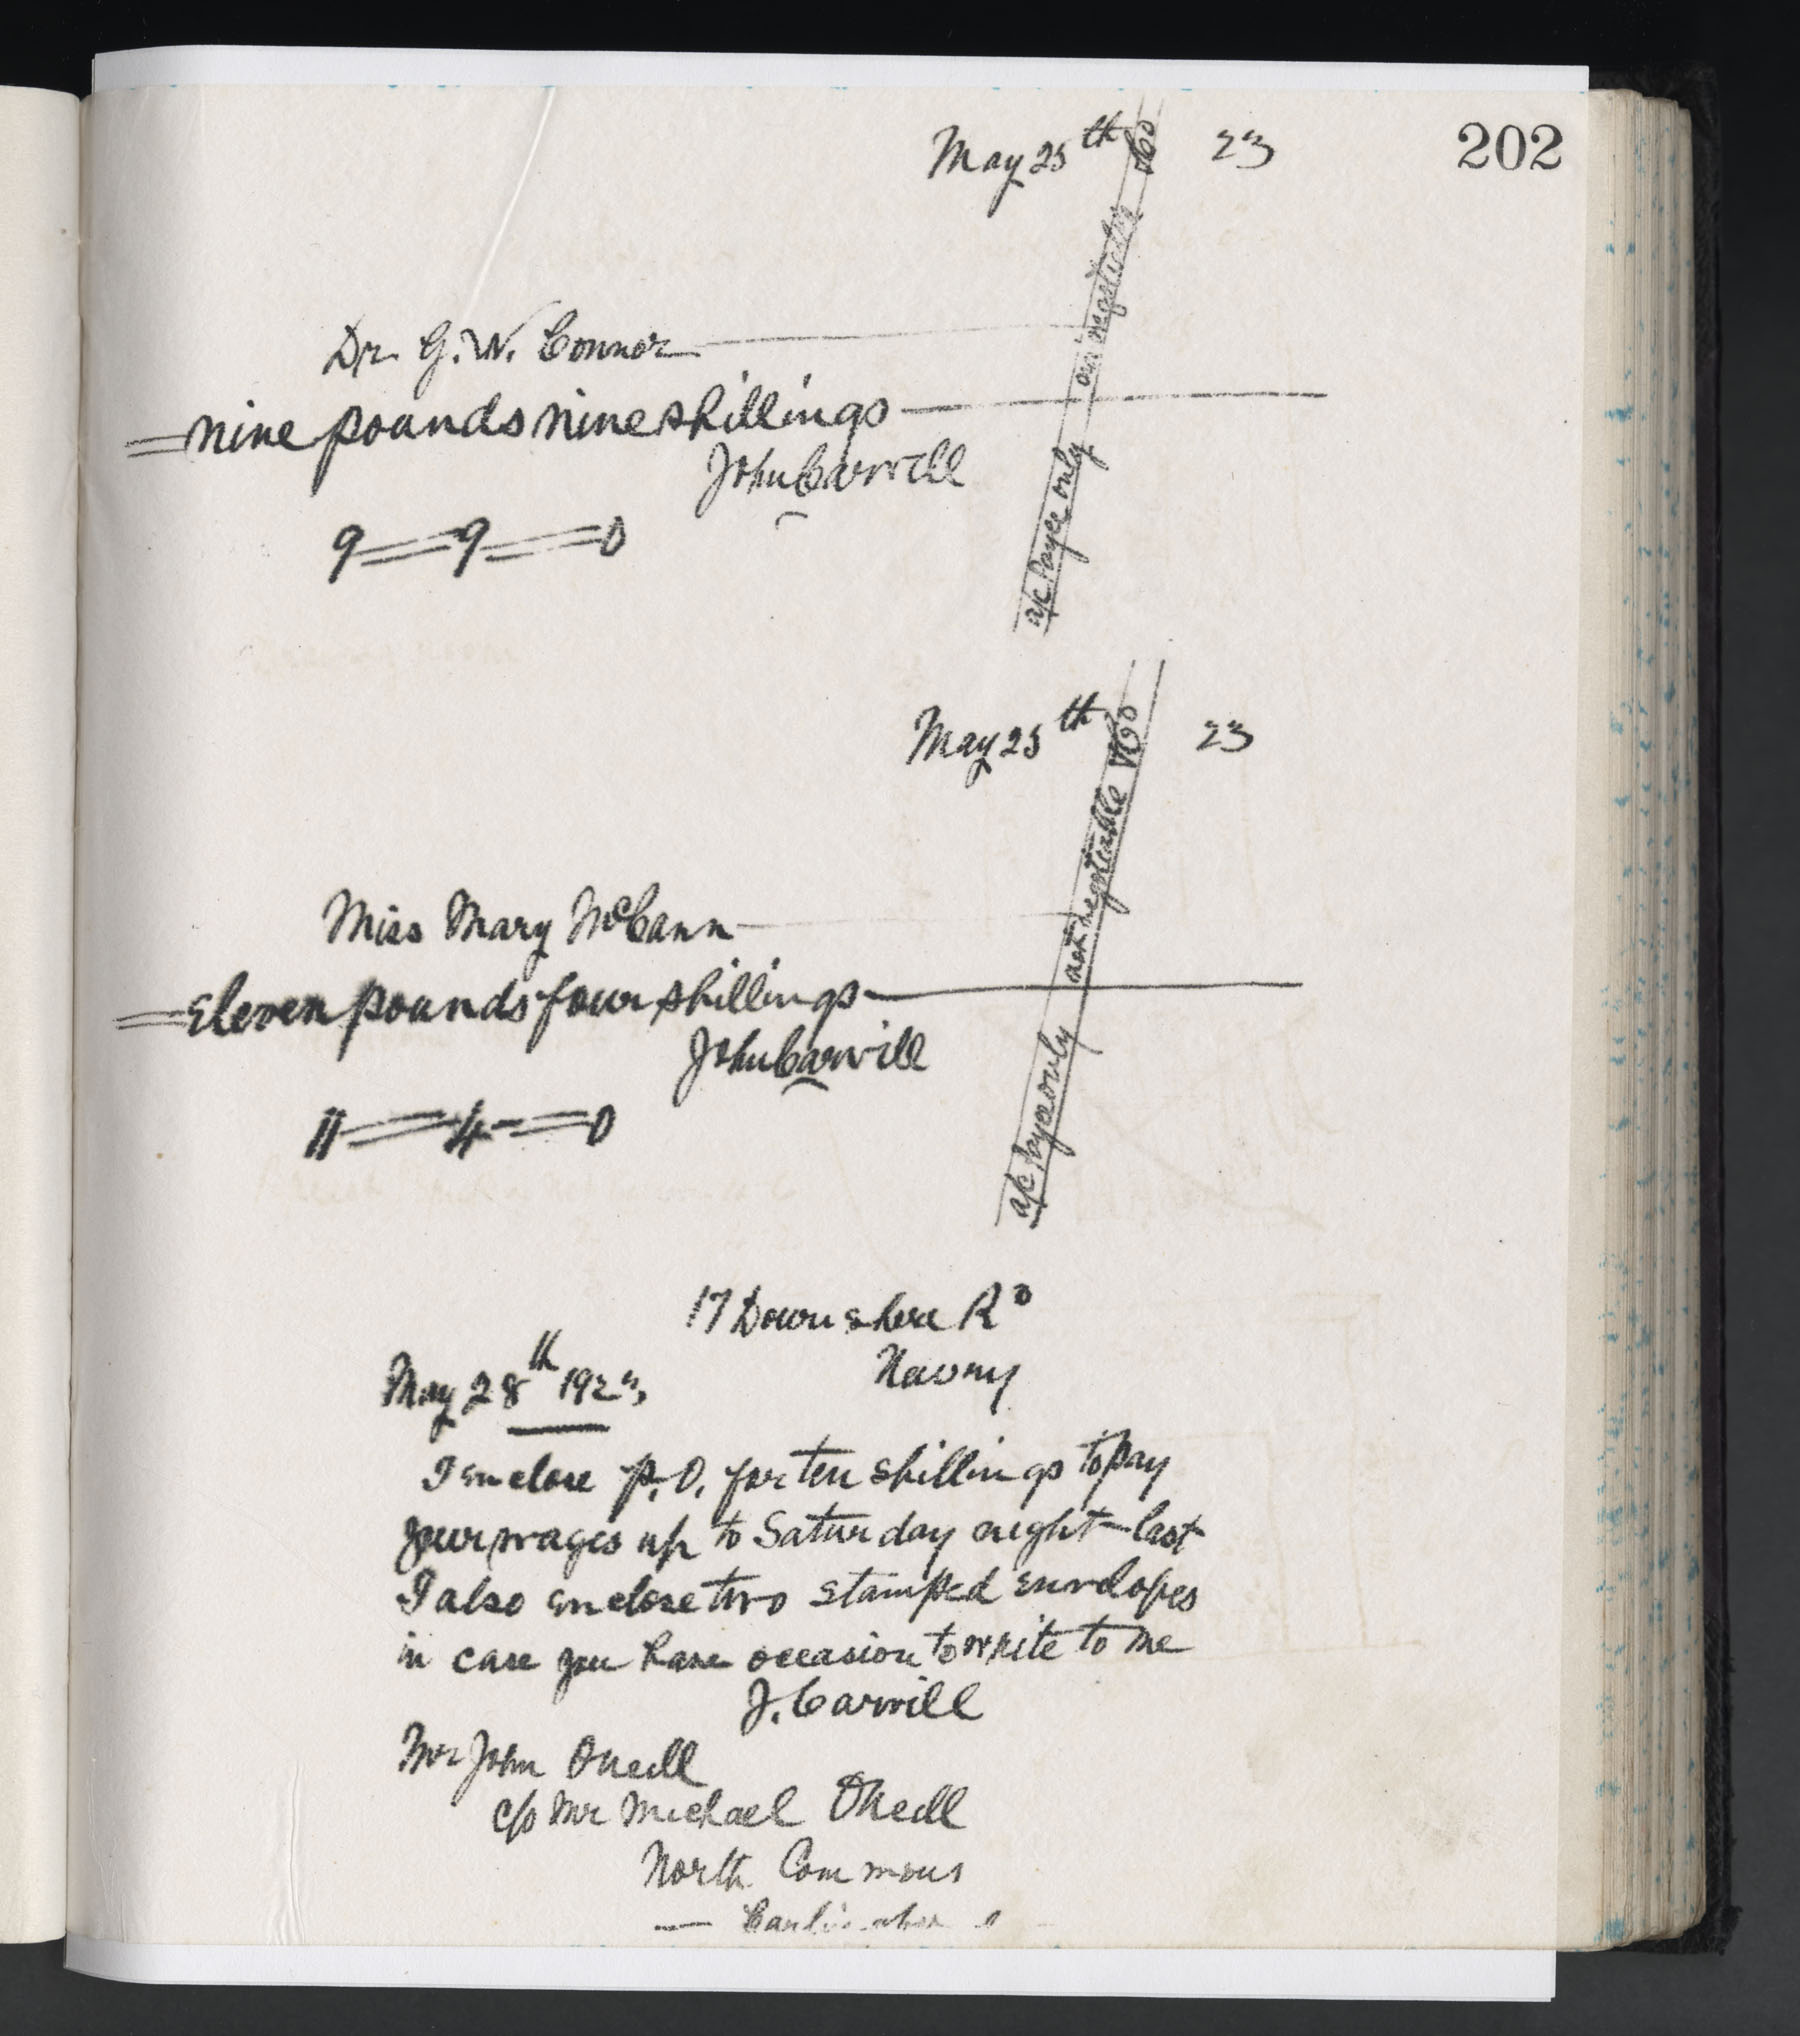 202
May 25th 23
a/c Payee only not negotiable & Co
Dr. G. W. Connor
nine pounds nine shillings
John Carvill
9 = 9 = 0
May 25th 23
a/c Payee only not negotiable & Co
Miss Mary McCann
Eleven pounds four shillings
John Carvill
11 = 4 = 0
17 Downshire Rd
Newry
May 28th 1923
I enclose P.O. for ten shillings to pay
your wages up to Saturday night last
I also enclose two stamped envelopes
in case you have occasion to write to me
J. Carvill
Mr John Oneill
c/o Mr Michael ONeill
North Commons
Carlingford